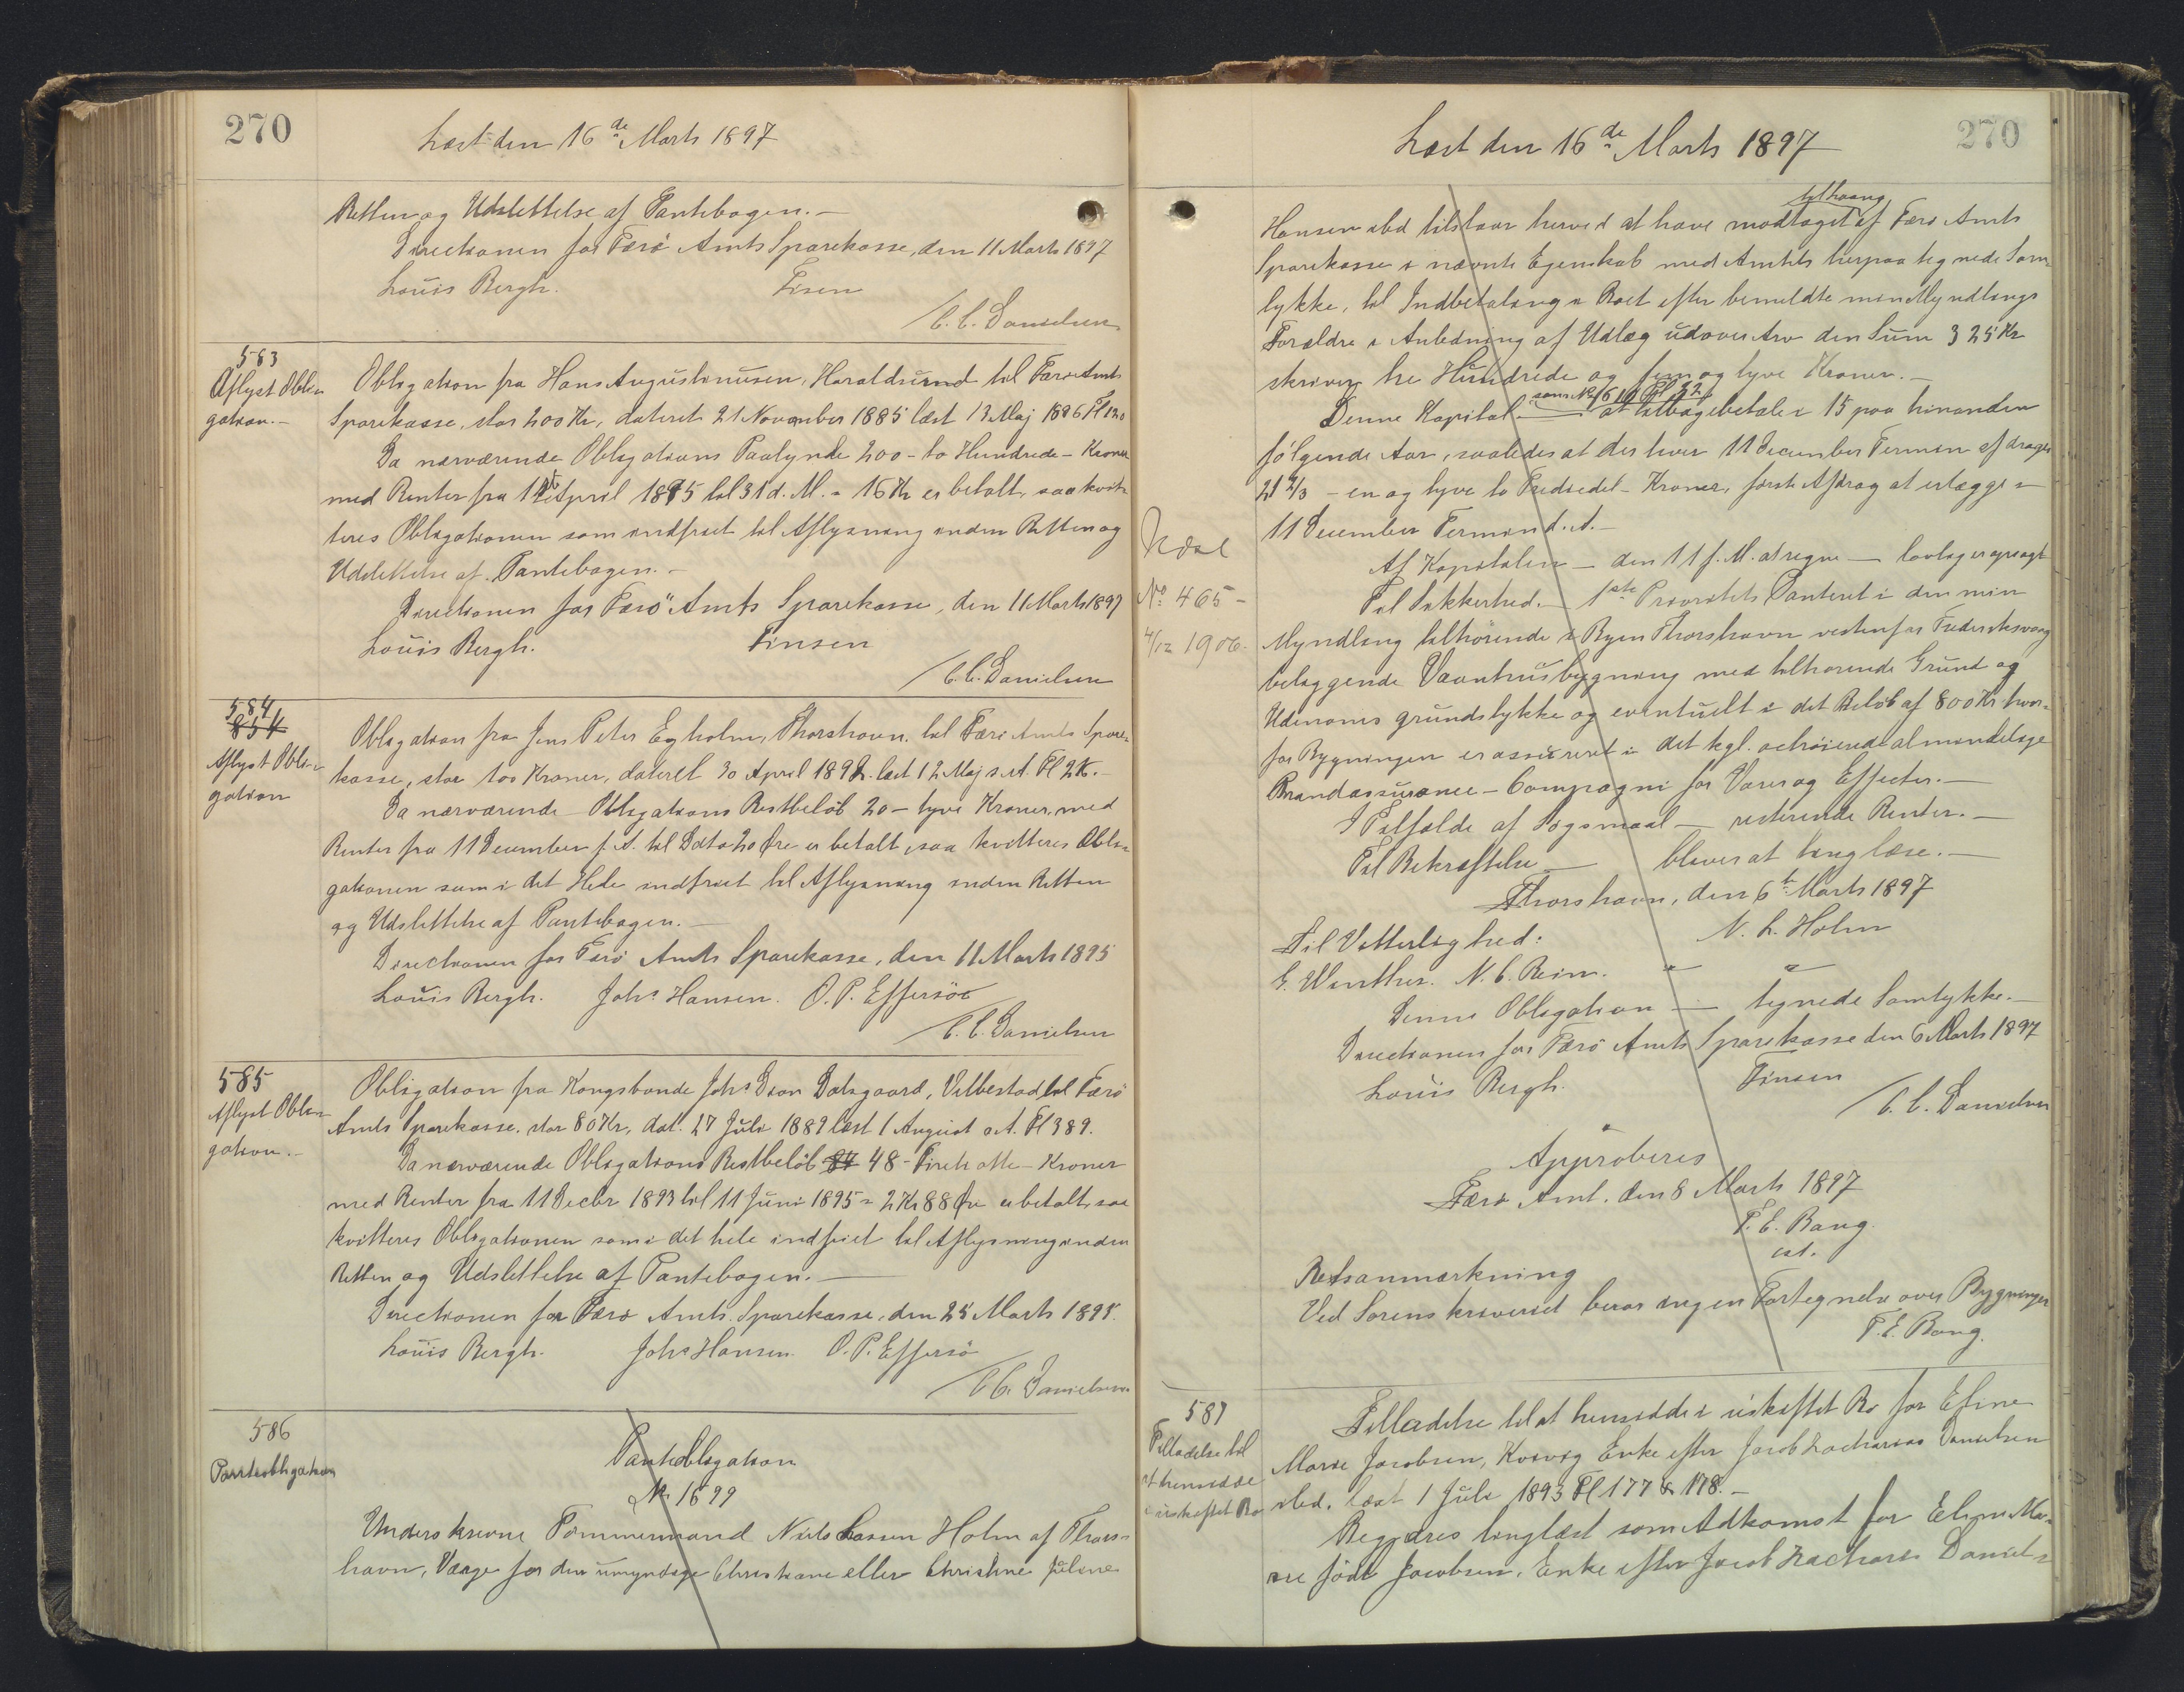 270
Læst den 16de Marts 1897
Retten og Udslettelse af Pantebogen.-
Directionen for Færö Amts Sparekasse, den 11 Marts 1897
Louis Bergh. Finsen
/C.C. Danielsen
583
Aflyst Obli-
gation.-
Obligation fra Hans Augustinusen, Haraldsund til Færö Amts
Sparekasse, stor 200 Kr, dateret 21 November 1885 læst 13 Maj 1886 Fl 120
Da nærværende Obligations Paalydende 200 - to Hundrede - Kroner
med Renter fra April 1895 til 31 d. M. = 16 Kr er betalt, saa kvit-
teres Obligationen som indfriet til Aflysning inden Retten og
Udslettelse af Pantebogen.-
Directionen for Færö Amts Sparekasse, den 11 Marts 1897
Louis Bergh. Finsen
/C.C. Danielsen
584
854
Aflyst Obli-
gation
Obligation fra Jens Peter Egholm, Thorshavn til Færö Amts Spare-
kasse, stor 100 Kroner, dateret 30 April 1892 læst 12 Maj s. A. Fl 25.-
Da nærværende Obligations Restbelöb 20 - tyve Kroner, med
Renter fra 11 December f. A. til Dato 20 Øre er betalt, saa kvitteres Obli-
gationen som i det Hele indfriet til Aflysning inden Retten
og Udslettelse af Pantebogen.-
Directionen for Færö Amts Sparekasse, den 11 Marts 1895
Louis Bergh. Johs Hansen. O.P. Effersöe
/C.C. Danielsen
585
Aflyst Obli-
gation.-
Obligation fra Kongsbonde Johs Dion Dalsgaard, Velbestad til Færö
Amts Sparekasse, stor 80 Kr, dat. 27 Juli 1889 læst 1 August s. A. Fl 389.
Da nærværende Obligations Restbelöb 48 - Fireti otte - Kroner
med Renter fra 11 Decbr 1893 til 11 Juni 1895 = 2 Kr 88 Øre er betalt, saa
kvitteres Obligationen som i det hele indfriet til Aflysning inden
Retten og Udslettelse af Pantebogen.-
Directionen for Færö Amts Sparekasse, den 25 Marts 1895.
Louis Bergh. Johs Hansen. O.P. Effersö
/C.C. Danielsen.
586
Panteobligation
Panteobligation
No 1699
Underskrevne Tömmermand Niels Lassen Holm af Thors-
havn, Værge for den umyndige Christiane eller Christine Juliane
270
Læst den 16de Marts 1897
tilhaang
Hansen ibd tilstaar herved at have modtaget af Færö Amts
Sparekasse i nævnte Egenskab med Amtets herpaa tegnede Sam-
tykke, til Indbetaling i Boet efter bemeldte min Myndlings
Forældre i Anledning af Udlæg udover Arv den Sum 325 Kr
skriver tre Hundrede og fem og tyve Kroner.-
som No 1610 Fl 22
Denne Kapital — at tilbagebetale i 15 paa hinanden
fölgende Aar, saaledes at der hver 11 December Termin afdrages
21 2/3 - en og tyve to Trediedel - Kroner, förste Afdrag at erlægge i
11 December Termin d. A.-
Af Kapitalen — den 11 f. M. at regne — lovlig opsagt
Til Sikkerhed.- 1ste Prioritets Panteret i den min
Indl
No 465-
4/12 1906-
Myndling tilhörende i Byen Thorshavn vestenfor Frederiksvaag
beliggende Vaaningshusbygning med tilhörende Grund og
Udenoms grundstykke og eventuelt i det Belöb af 800 Kr hvor-
for Bygningen er assureret i det kgl. octroierede almindelige
Brandassurance-Compagni for Varer og Effecter.-
I Tilfælde af Sögsmaal — resterende Renter.-
Til Bekræftelse — bliver at tinglæse.-
Thorshavn, den 6te Marts 1897
Til Vitterlighed: N. L. Holm
E. Winther. N. C. Reim.
Denne Obligation — tegnede Samtykke.-
Directionen for Færö Amts Sparekasse den 6 Marts 1897
Louis Bergh. Finsen
/C.C. Danielsen
Approberes
Færö Amt, den 8 Marts 1897
F. E. Bang
cst.
Retsanmærkning
Ved Sorenskriveriet beror ingen Fortegnelse over Bygninger
F. E. Bang.
587
Tilladelse til
at hensidde
i uskiftet Bo
Tilladelse til at hensidde i uskiftet Bo for Eline
Marie Jacobsen, Kvivig Enke efter Jacob Zacharias Danielsen
ibd. læst 1 Juli 1893 Fl 177 & 178.-
Begjæres tinglæst som Adkomst for Eline Ma-
rie födt Jacobsen, Enke efter Jacob Zacharias Daniel-